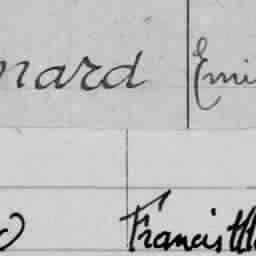 nard Emi
Francis